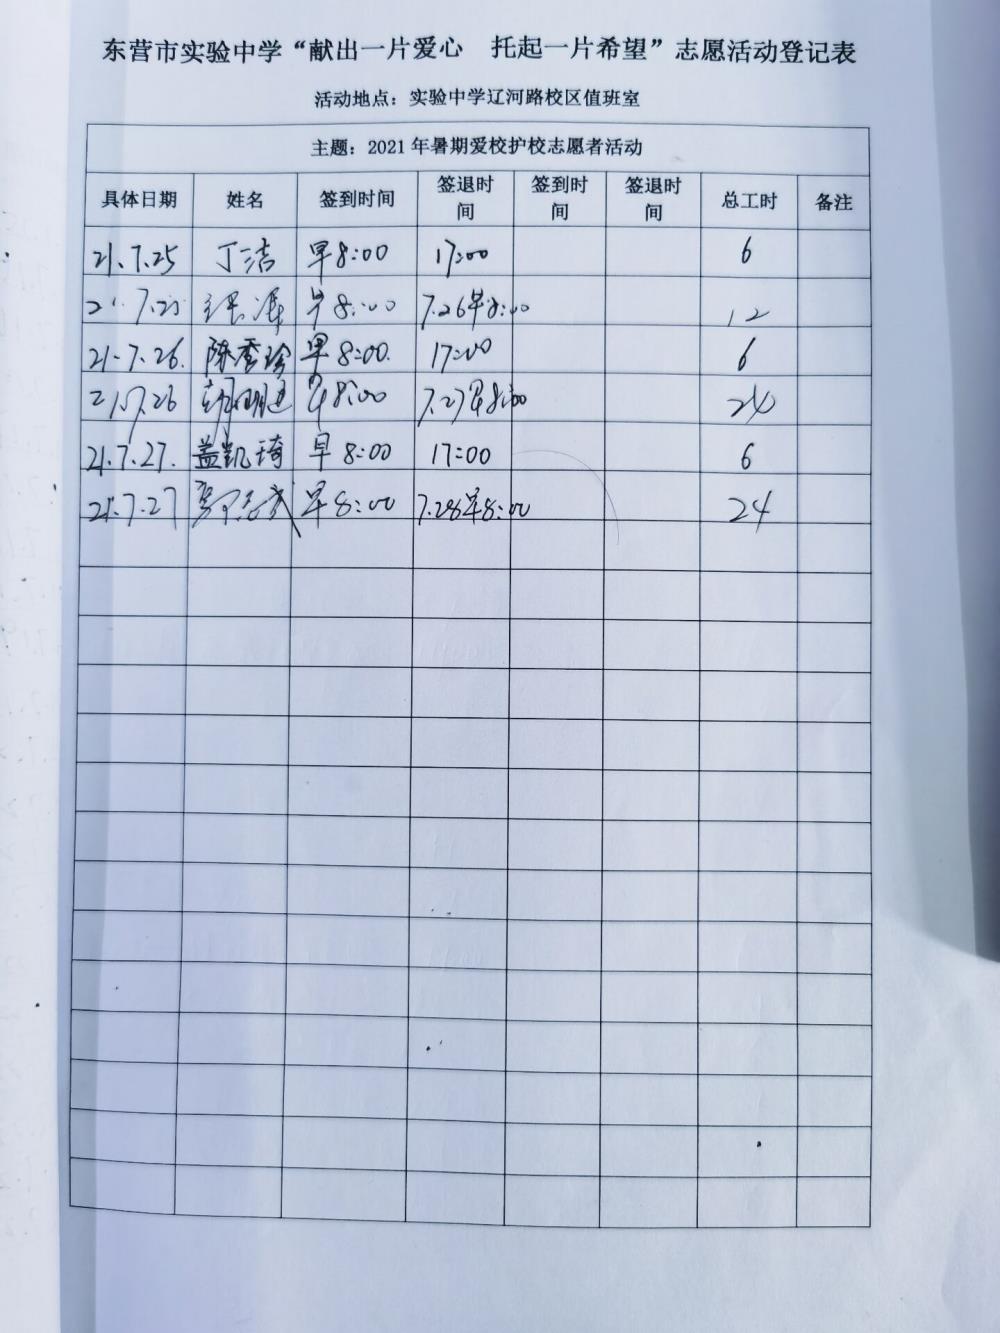 东营市实验中学“献出一片爱心 托起一片希望”志愿活动登记表
活动地点：实验中学辽河路校区值班室
主题：2021年暑期爱校护校志愿者活动
具体日期 姓名 签到时间 签退时间 签到时间 签退时间 总工时 备注
21.7.25 丁洁 早8:00 17:00 6
21.7.25 早8:00 7.26早8:00 12
21.7.26. 陈秀珍 早8:00. 17:00 6
21.7.26 早8:00 7.27早8:00 24
21.7.27. 盖凯琦 早8:00 17:00 6
21.7.27 早8:00 7.28早8:00 24